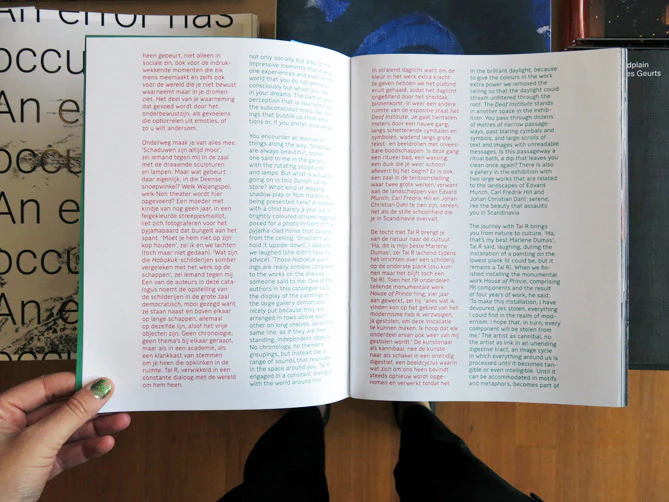 An error has
occu
An e
occu
An e
occu
An e
occu
An e
heen gebeurt, niet alleen in
sociale zin, ook voor de indruk-
wekkende momenten die elk
mens meemaakt en zelfs ook
voor de wereld die je niet bewust
waarneemt maar in je dromen
ziet. Het deel van je waarneming
dat gevoed wordt door het
onderbewustzijn, als gevoelens
die opborrelen uit emoties, of
zo u wilt andersom.
Onderweg maak je van alles mee:
'Schaduwen zijn altijd mooi',
zei iemand tegen mij in de zaal
met de draaiende sculpturen
en lampen. Maar wat gebeurt
daar eigenlijk, in die Deense
snoepwinkel? Welk Wajangspel,
welk Noh theater wordt hier
opgevoerd? Een moeder met
kindje van nog geen jaar, in een
feigekleurde streepjesmaillot,
liet zich fotograferen voor het
pyjamapaard dat bungelt aan het
spant. 'Moet je hem niet op zijn
kop houden', zei ik en we lachten
(toch maar niet gedaan). 'Wat zijn
die Habakuk-schilderijen somber
vergeleken met het werk op de
schappen', zei iemand tegen mij.
Een van de auteurs in deze cata-
logus noemt de opstelling van
de schilderijen in de grote zaal
democratisch, mooi gezegd want
ze staan naast en boven elkaar
op lange schappen, allemaal
op dezelfde lijn, alsof het vrije
objecten zijn. Geen chronologie,
geen thema's bij elkaar geraapt,
maar als in een academie, als
een klankkast van stemmen
om je heen die opklinken in de
ruimte. Tal R, verwikkeld in een
constante dialoog met de wereld
om hem heen.
not only socially but also to the
impressive moments that every
one experiences and even to the
world that you do not perceive
consciously but which you see
in your dreams. The part of your
perception that is nourished by
the subconscious mind, like feel-
ings that bubble up from emo-
tions or, if you prefer, vice versa.
You encounter all manner of
things along the way. 'Shadows
are always beautiful', some-
one said to me in the gallery
with the rotating sculptures
and lamps. But what is actually
going on in this Danish candy
store? What kind of Wayang
shadow play or Noh theatre is
being presented here? A mother
with a child barely a year old, in
brightly coloured striped leggings,
posed for a photo in front of the
pyjama-clad horse that dangles
from the ceiling. 'Shouldn't you
hold it upside-down', I said and
we laughed (she didn't take my
advice). 'Those Habakuk paint-
ings are really sombre compared
to the works on the shelves',
someone said to me. One of the
authors in this catalogue calls
the display of the paintings in
the large gallery democratic,
nicely put because they are
arranged in rows above each
other on long shelves, all on the
same line, as if they are free-
standing, independent objects.
No chronology, no thematic
groupings, but instead like a
range of sounds that resonate
in the space around you. Tal R,
engaged in a constant dialogue
with the world around him.
In stralend daglicht want om de
kleur in het werk extra kracht
te geven hebben we het plafond
eruit gehaald, zodat het daglicht
ongefilterd door het sheddak
binnenkomt. In weer een andere
ruimte van de expositie staat het
Deaf Institute. Je gaat tientallen
meters door een nauwe gang,
langs schetterende cymbalen en
symbolen, wadend langs grote
tekst- en beeldrollen met onves-
taanbare boodschappen. Is deze gang
een ritueel bad, een wassing,
een duik die je weer schoon
aflevert bij het begin? Er is ook
een zaal in de tentoonstelling
waar twee grote werken, verwant
aan de landschappen van Edvard
Munch, Carl Fredrik Hill en Johan
Christian Dahl te zien zijn, sereen,
net als de stille schoonheid die
je in Scandinavië overvalt.
De tocht met Tal R brengt je
van de natuur naar de cultuur.
'Ha, dit is mijn beste Marlene
Dumas', zei Tal R lachend tijdens
het inrichten over een schilderij
op de onderste plank (zou kun-
nen maar het blijft toch een
Tal R). Toen het 191 onderdelen
tellende monumentale werk
House of Prince hing, vier jaar
aan gewerkt, zei hij: 'alles wat ik
vinden kon op het gebied van het
modernisme heb ik verzwolgen,
ja gestolen, om deze installatie
te kunnen maken. Ik hoop dat elk
onderdeel ervan ook weer van mij
gestolen wordt.' De kunstenaar
als kannibaal, nee de kunste-
naar als schakel in een oneindig
digestief, een beeldcyclus waarin
wat zich om ons heen bevindt
steeds opnieuw wordt opge-
nomen en verwerkt totdat het
In the brilliant daylight, because
to give the colours in the work
extra power we removed the
ceiling so that the daylight could
stream unfiltered through the
roof. The Deaf Institute stands
in another space in the exhibi-
tion. You pass through dozens
of metres of narrow passage-
ways, past blaring cymbals and
symbols, and large scrolls of
text and images with unreadable
messages. Is this passageway a
ritual bath, a dip that leaves you
clean once again? There is also
a gallery in the exhibition with
two large works that are related
to the landscapes of Edvard
Munch, Carl Fredrik Hill and
Johan Christian Dahl: serene,
like the beauty that assaults
you in Scandinavia.
The journey with Tal R brings
you from nature to culture. 'Ha,
that's my best Marlene Dumas',
Tal R said, laughing, during the
installation of a painting on the
lowest plank (it could be, but it
remains a Tal R). When we fin-
ished installing the monumental
work House of Prince, comprising
191 components and the result
of four years of work, he said:
'To make this installation, I have
devoured, yes stolen, everything
I could find in the realm of mod-
ernism. I hope that, in turn, every
component will be stolen from
me.' The artist as cannibal, no
the artist as link in an unending
digestive tract, an image cycle
in which everything around us is
processed until it becomes tan-
gible or even intelligible. Until it
can be accommodated in motifs
and metaphors, becomes part of
es Geurts